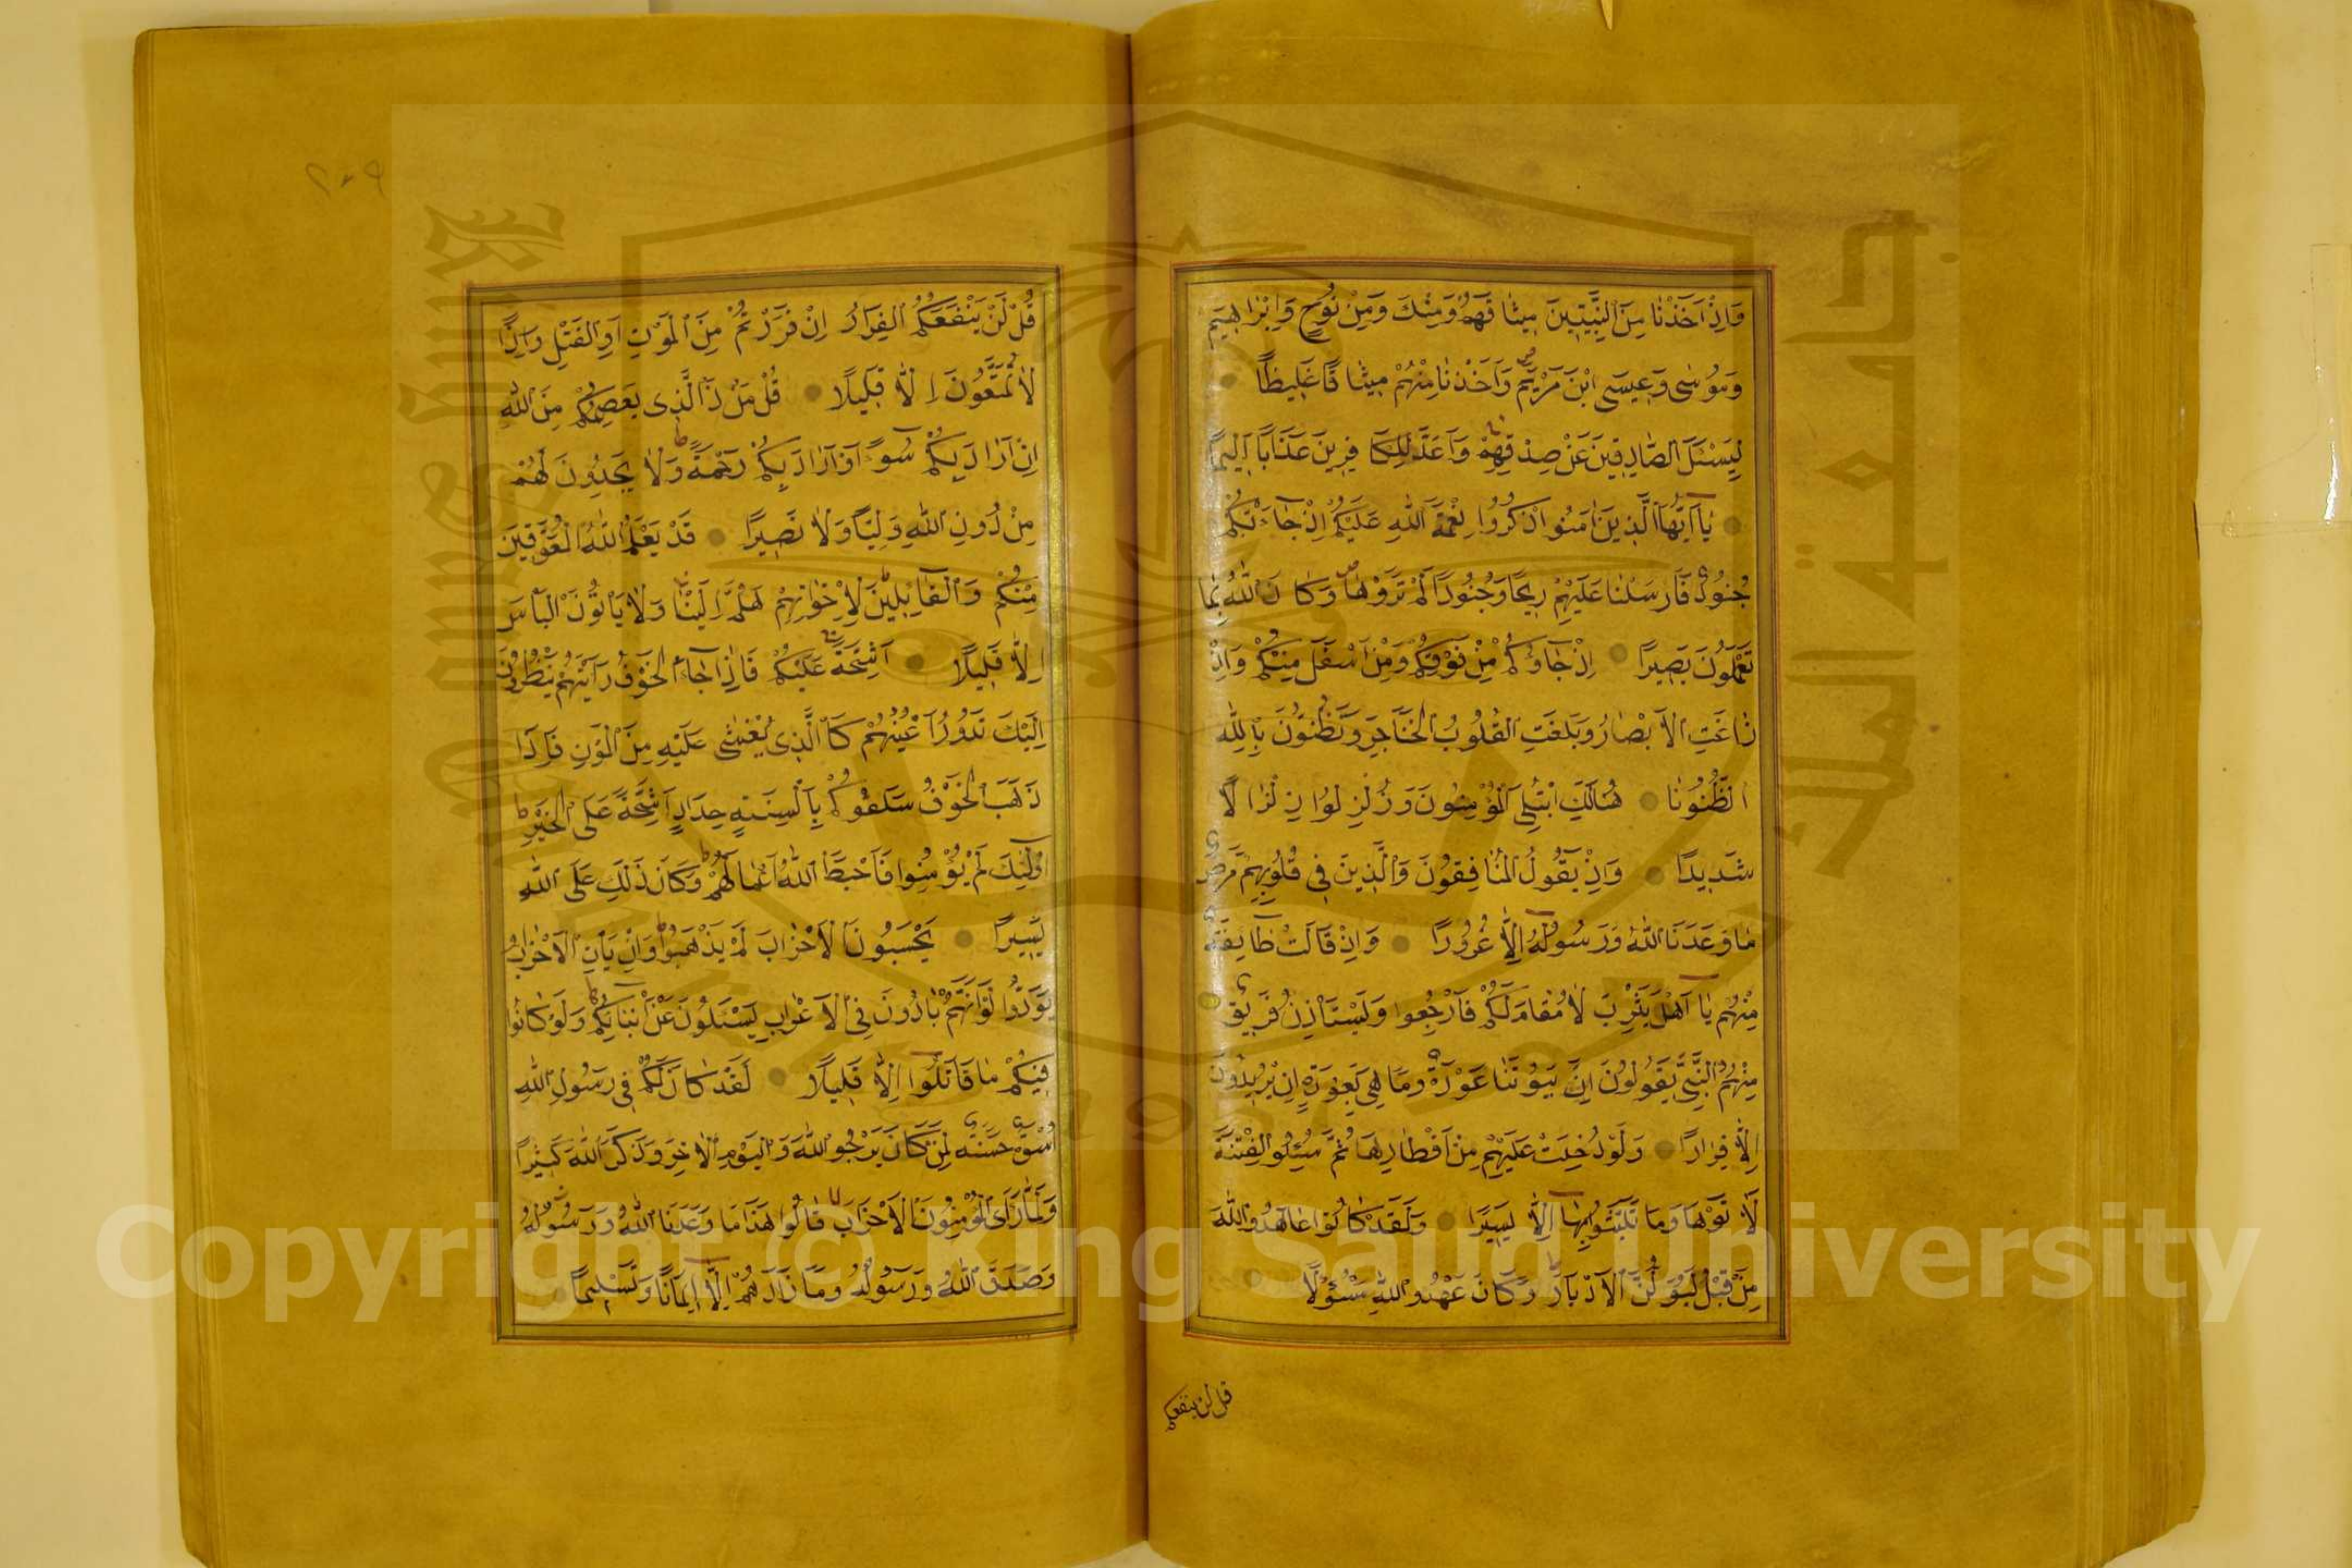 وَاِذْ اَخَذْنَا مِنَ النَّبِيّٖنَ مِيثَاقَهُمْ وَمِنْكَ وَمِنْ نُوحٍ وَاِبْرٰاهِيمَ
وَمُوسٰى وَعِيسَى ابْنَ مَرْيَمَ وَاَخَذْنَا مِنْهُمْ مِيثَاقًا غَلِيظًا
لِيَسْئَلَ الصَّادِقِينَ عَنْ صِدْقِهِمْ وَاَعَدَّ لِلْكَافِرِينَ عَذَابًا اَلِيمًا
يَا اَيُّهَا الَّذِينَ اٰمَنُوا اذْكُرُوا نِعْمَةَ اللّٰهِ عَلَيْكُمْ اِذْ جَاءَتْكُمْ
جُنُودٌ فَاَرْسَلْنَا عَلَيْهِمْ رِيحًا وَجُنُودًا لَمْ تَرَوْهَا وَكَانَ اللّٰهُ بِمَا
تَعْمَلُونَ بَصِيرًا اِذْ جَاؤُكُمْ مِنْ فَوْقِكُمْ وَمِنْ اَسْفَلَ مِنْكُمْ وَاِذْ
زَاغَتِ الْاَبْصَارُ وَبَلَغَتِ الْقُلُوبُ الْحَنَاجِرَ وَتَظُنُّونَ بِاللّٰهِ
الظُّنُونَا هُنَالِكَ ابْتُلِيَ الْمُؤْمِنُونَ وَزُلْزِلُوا زِلْزَالًا
شَدِيدًا وَاِذْ يَقُولُ الْمُنَافِقُونَ وَالَّذِينَ فِي قُلُوبِهِمْ مَرَضٌ
مَا وَعَدَنَا اللّٰهُ وَرَسُولُهُ اِلَّا غُرُورًا وَاِذْ قَالَتْ طَائِفَةٌ
مِنْهُمْ يَا اَهْلَ يَثْرِبَ لَا مُقَامَ لَكُمْ فَارْجِعُوا وَيَسْتَاْذِنُ فَرِيقٌ
مِنْهُمُ النَّبِيَّ يَقُولُونَ اِنَّ بُيُوتَنَا عَوْرَةٌ وَمَا هِيَ بِعَوْرَةٍ اِنْ يُرِيدُونَ
اِلَّا فِرَارًا وَلَوْ دُخِلَتْ عَلَيْهِمْ مِنْ اَقْطَارِهَا ثُمَّ سُئِلُوا الْفِتْنَةَ
لَاٰتَوْهَا وَمَا تَلَبَّثُوا بِهَا اِلَّا يَسِيرًا وَلَقَدْ كَانُوا عَاهَدُوا اللّٰهَ
مِنْ قَبْلُ لَا يُوَلُّونَ الْاَدْبَارَ وَكَانَ عَهْدُ اللّٰهِ مَسْؤُلًا
قل لن ينفعكم
٢٠٩
قُلْ لَنْ يَنْفَعَكُمُ الْفِرَارُ اِنْ فَرَرْتُمْ مِنَ الْمَوْتِ اَوِ الْقَتْلِ وَاِذًا
لَا تُمَتَّعُونَ اِلَّا قَلِيلًا قُلْ مَنْ ذَا الَّذِي يَعْصِمُكُمْ مِنَ اللّٰهِ
اِنْ اَرَادَ بِكُمْ سُوءًا اَوْ اَرَادَ بِكُمْ رَحْمَةً وَلَا يَجِدُونَ لَهُمْ
مِنْ دُونِ اللّٰهِ وَلِيًّا وَلَا نَصِيرًا قَدْ يَعْلَمُ اللّٰهُ الْمُعَوِّقِينَ
مِنْكُمْ وَالْقَائِلِينَ لِاِخْوَانِهِمْ هَلُمَّ اِلَيْنَا وَلَا يَاْتُونَ الْبَاْسَ
اِلَّا قَلِيلًا اَشِحَّةً عَلَيْكُمْ فَاِذَا جَاءَ الْخَوْفُ رَاَيْتَهُمْ يَنْظُرُونَ
اِلَيْكَ تَدُورُ اَعْيُنُهُمْ كَالَّذِي يُغْشٰى عَلَيْهِ مِنَ الْمَوْتِ فَاِذَا
ذَهَبَ الْخَوْفُ سَلَقُوكُمْ بِاَلْسِنَةٍ حِدَادٍ اَشِحَّةً عَلَى الْخَيْرِ
اُولٰئِكَ لَمْ يُؤْمِنُوا فَاَحْبَطَ اللّٰهُ اَعْمَالَهُمْ وَكَانَ ذٰلِكَ عَلَى اللّٰهِ
يَسِيرًا يَحْسَبُونَ الْاَحْزَابَ لَمْ يَذْهَبُوا وَاِنْ يَاْتِ الْاَحْزَابُ
يَوَدُّوا لَوْ اَنَّهُمْ بَادُونَ فِي الْاَعْرَابِ يَسْئَلُونَ عَنْ اَنْبَائِكُمْ وَلَوْ كَانُوا
فِيكُمْ مَا قَاتَلُوا اِلَّا قَلِيلًا لَقَدْ كَانَ لَكُمْ فِي رَسُولِ اللّٰهِ
اُسْوَةٌ حَسَنَةٌ لِمَنْ كَانَ يَرْجُو اللّٰهَ وَالْيَوْمَ الْاٰخِرَ وَذَكَرَ اللّٰهَ كَثِيرًا
وَلَمَّا رَاَى الْمُؤْمِنُونَ الْاَحْزَابَ قَالُوا هٰذَا مَا وَعَدَنَا اللّٰهُ وَرَسُولُهُ
وَصَدَقَ اللّٰهُ وَرَسُولُهُ وَمَا زَادَهُمْ اِلَّا اِيمَانًا وَتَسْلِيمًا
Copyright © King Saud University
جامعة الملك
King Saud University